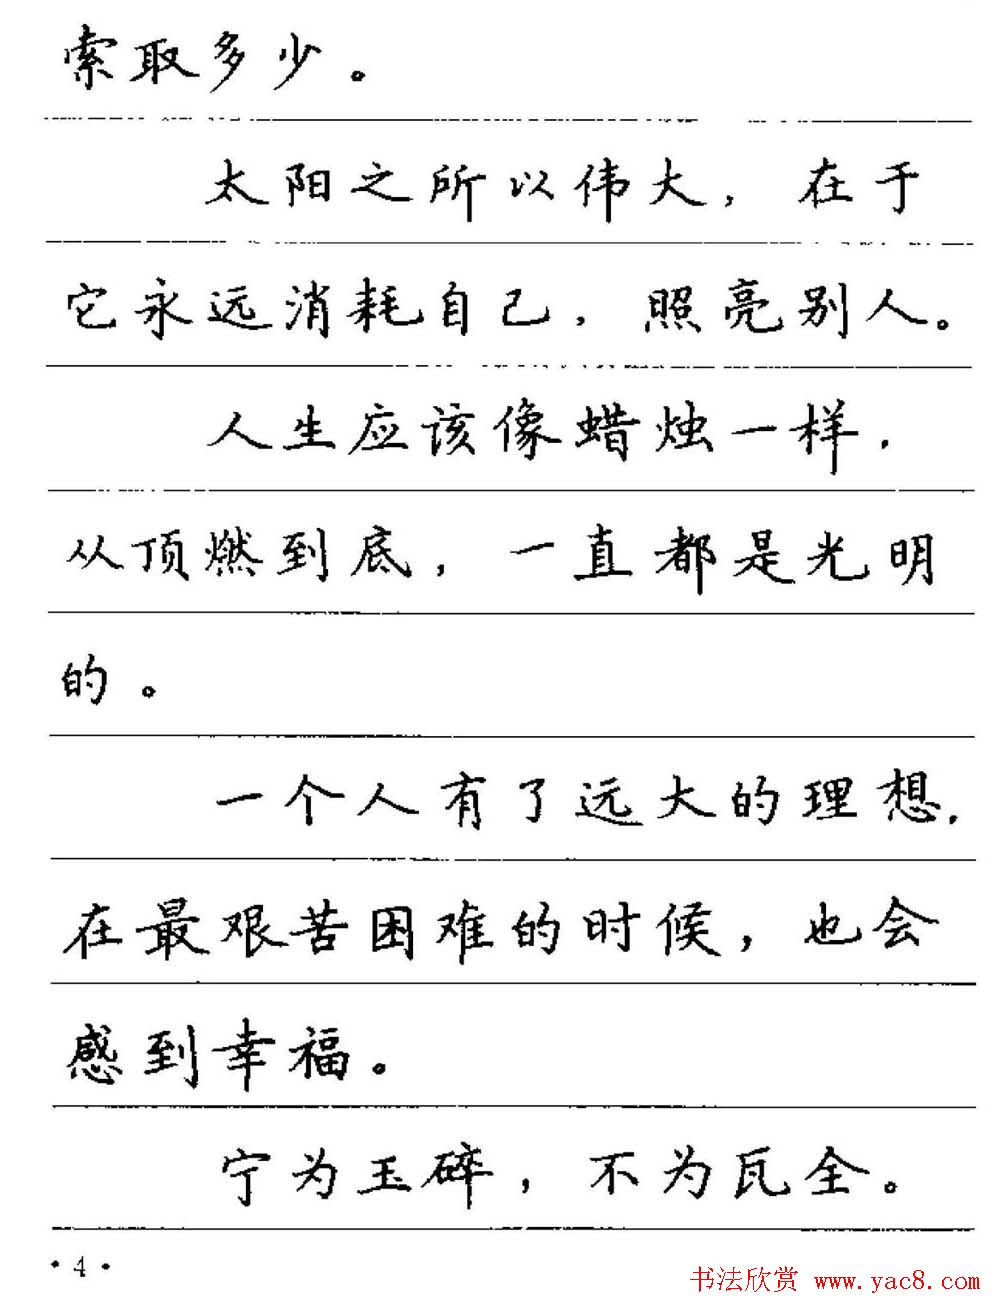 索取多少。
太阳之所以伟大，在于
它永远消耗自己，照亮别人。
人生应该像蜡烛一样，
从顶燃到底，一直都是光明
的。
一个人有了远大的理想，
在最艰苦困难的时候，也会
感到幸福。
宁为玉碎，不为瓦全。
·4·
书法欣赏 www.yac8.com